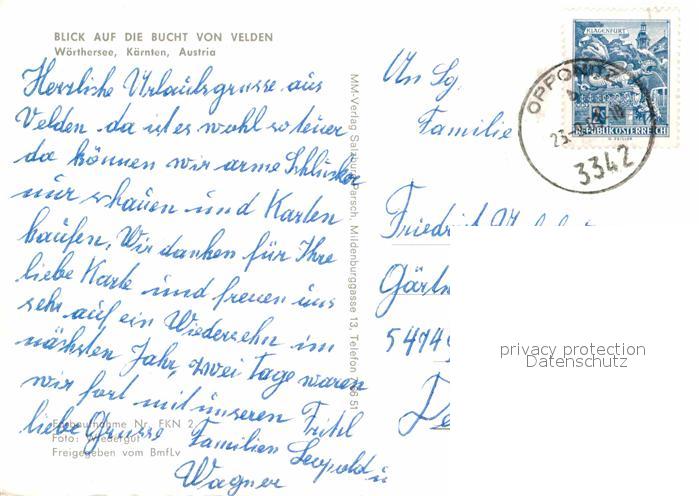 BLICK AUF DIE BUCHT VON VELDEN
Wörthersee, Kärnten, Austria
Herzliche Urlaubsgrüsse aus
Velden. da ist es wohl so teuer
da können wir arme Schlucker
nur schauen und Karten
kaufen, Wir danken für Ihre
liebe Karte und freuen uns
sehr auf ein Wiedersehn im
nächsten Jahr, zwei Tage waren
wir fort mit unseren Fritzl
liebe Grüsse Familien Leopold u
Wagner
Farbaufnahme Nr. FKN 2
Foto: Wiedergut
Freigegeben vom BmfLv
MM-Verlag Salzburg-Parsch, Mildenburggasse 13, Telefon
An Sg.
Familie
Friedrich
Gärtn
5474
KLAGENFURT
REPUBLIK ÖSTERREICH
OPPONITZ
23
3342
privacy protection
Datenschutz